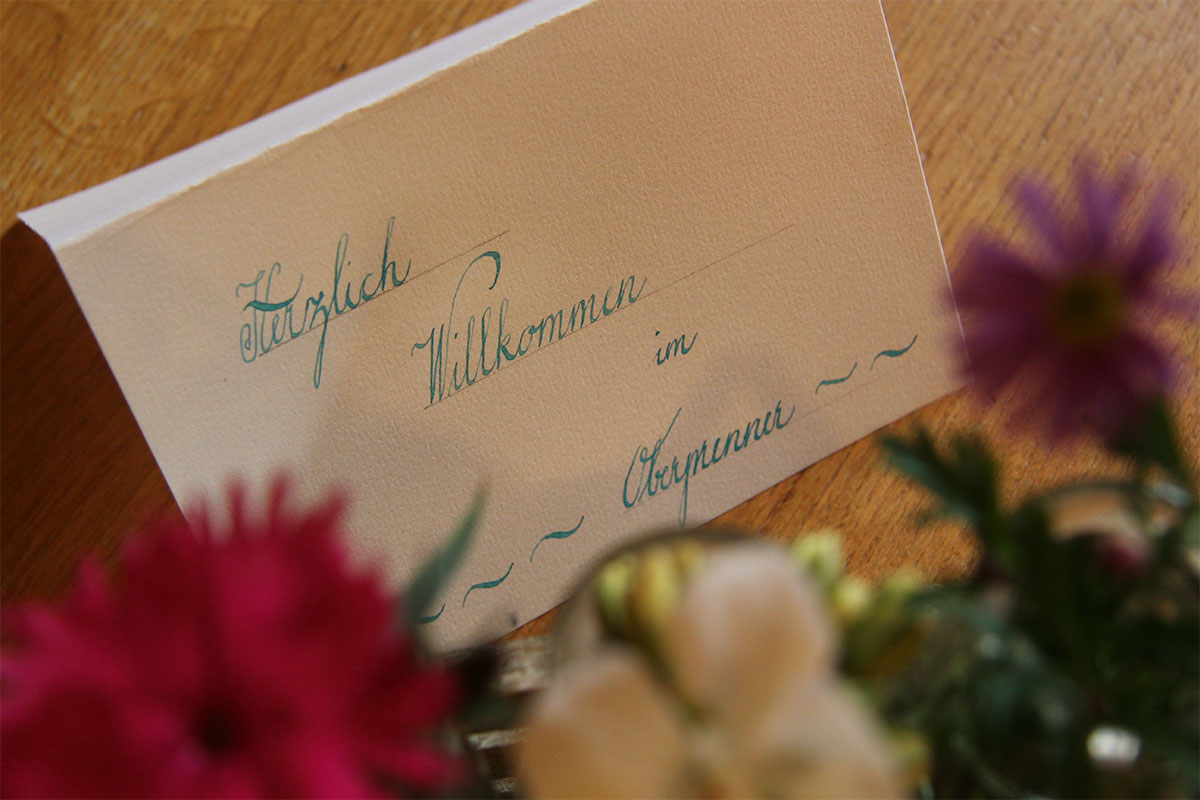 Herzlich
Willkommen
im
Obermenner